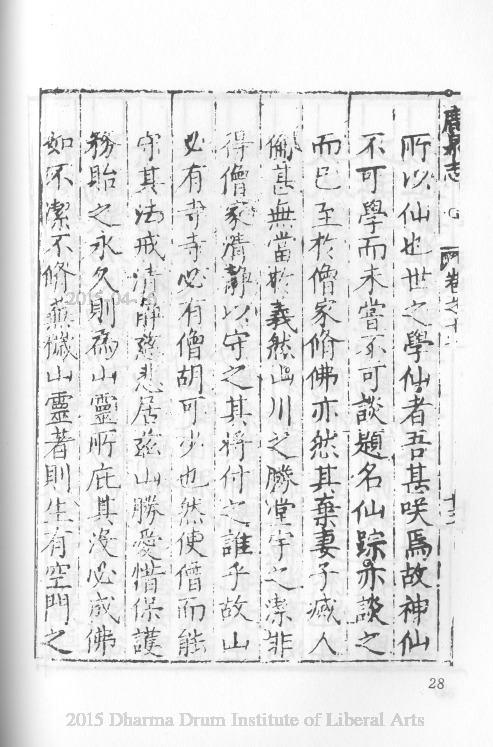 鹿泉志 卷之十二 十三
所以仙也世之學仙者吾甚咲焉故神仙
不可學而未嘗不可談題名仙踪亦談之
而已至於僧家脩佛亦然其棄妻子滅人
倫甚無當於義然山川之勝堂宇之潔非
得僧家清靜以守之其將付之誰乎故山
必有寺寺必有僧胡可少也然使僧而能
守其法戒清靜慈悲居茲山勝愛惜保護
務貽之永久則為山靈所庇其沒必成佛
如不潔不脩蕪穢山靈者則生有空門之
28
2015 Dharma Drum Institute of Liberal Arts